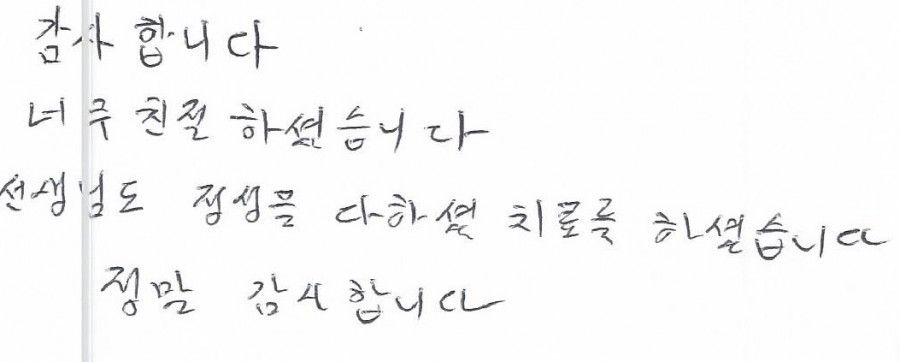 감사합니다
너무 친절 하셨습니다
선생님도 정성을 다하셨 치료를 하셨습니다
정말 감사합니다